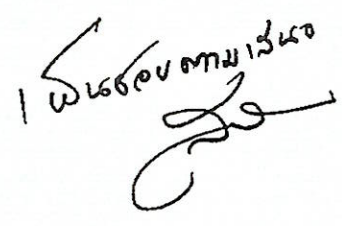 เห็นชอบตามเสนอ